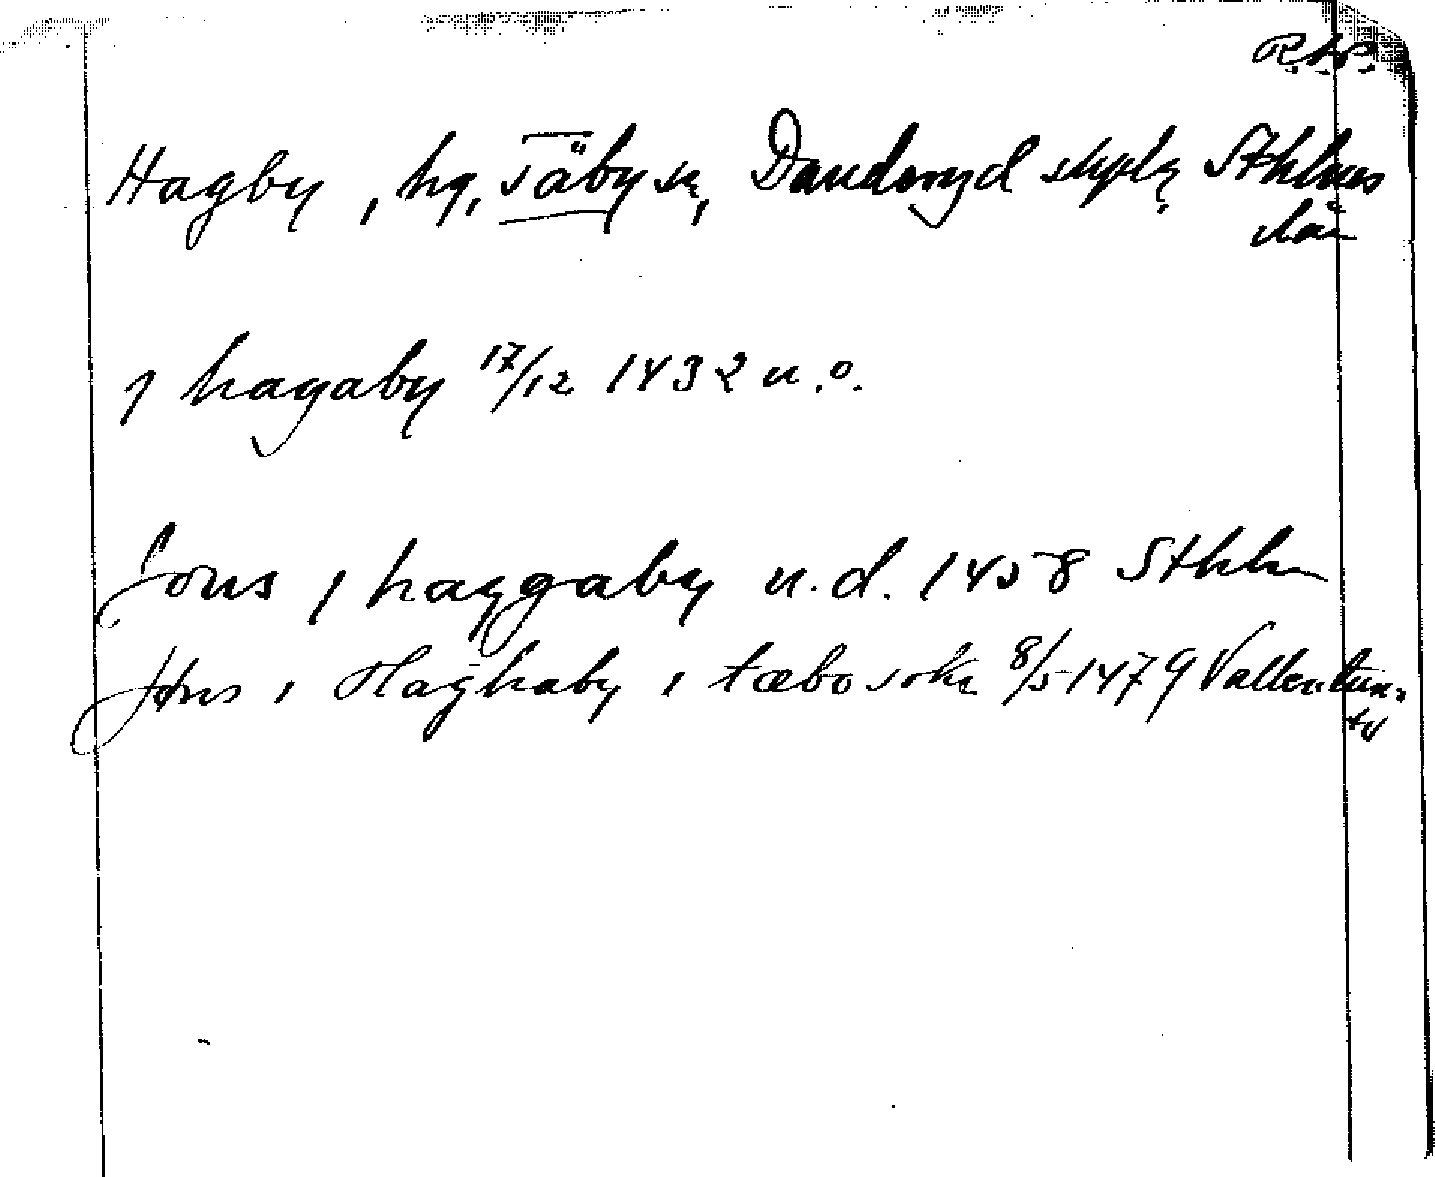 R.A.P.
Hagby, hg, Täby sn, Danderyd skplg Sthlms
län
j hagaby 17/12 1432 u.o.
Jons j haggaby u.d. 1458 Sthlm
Jöns i Haghaby i tæbo sokn 8/5 1479 Vallentun-